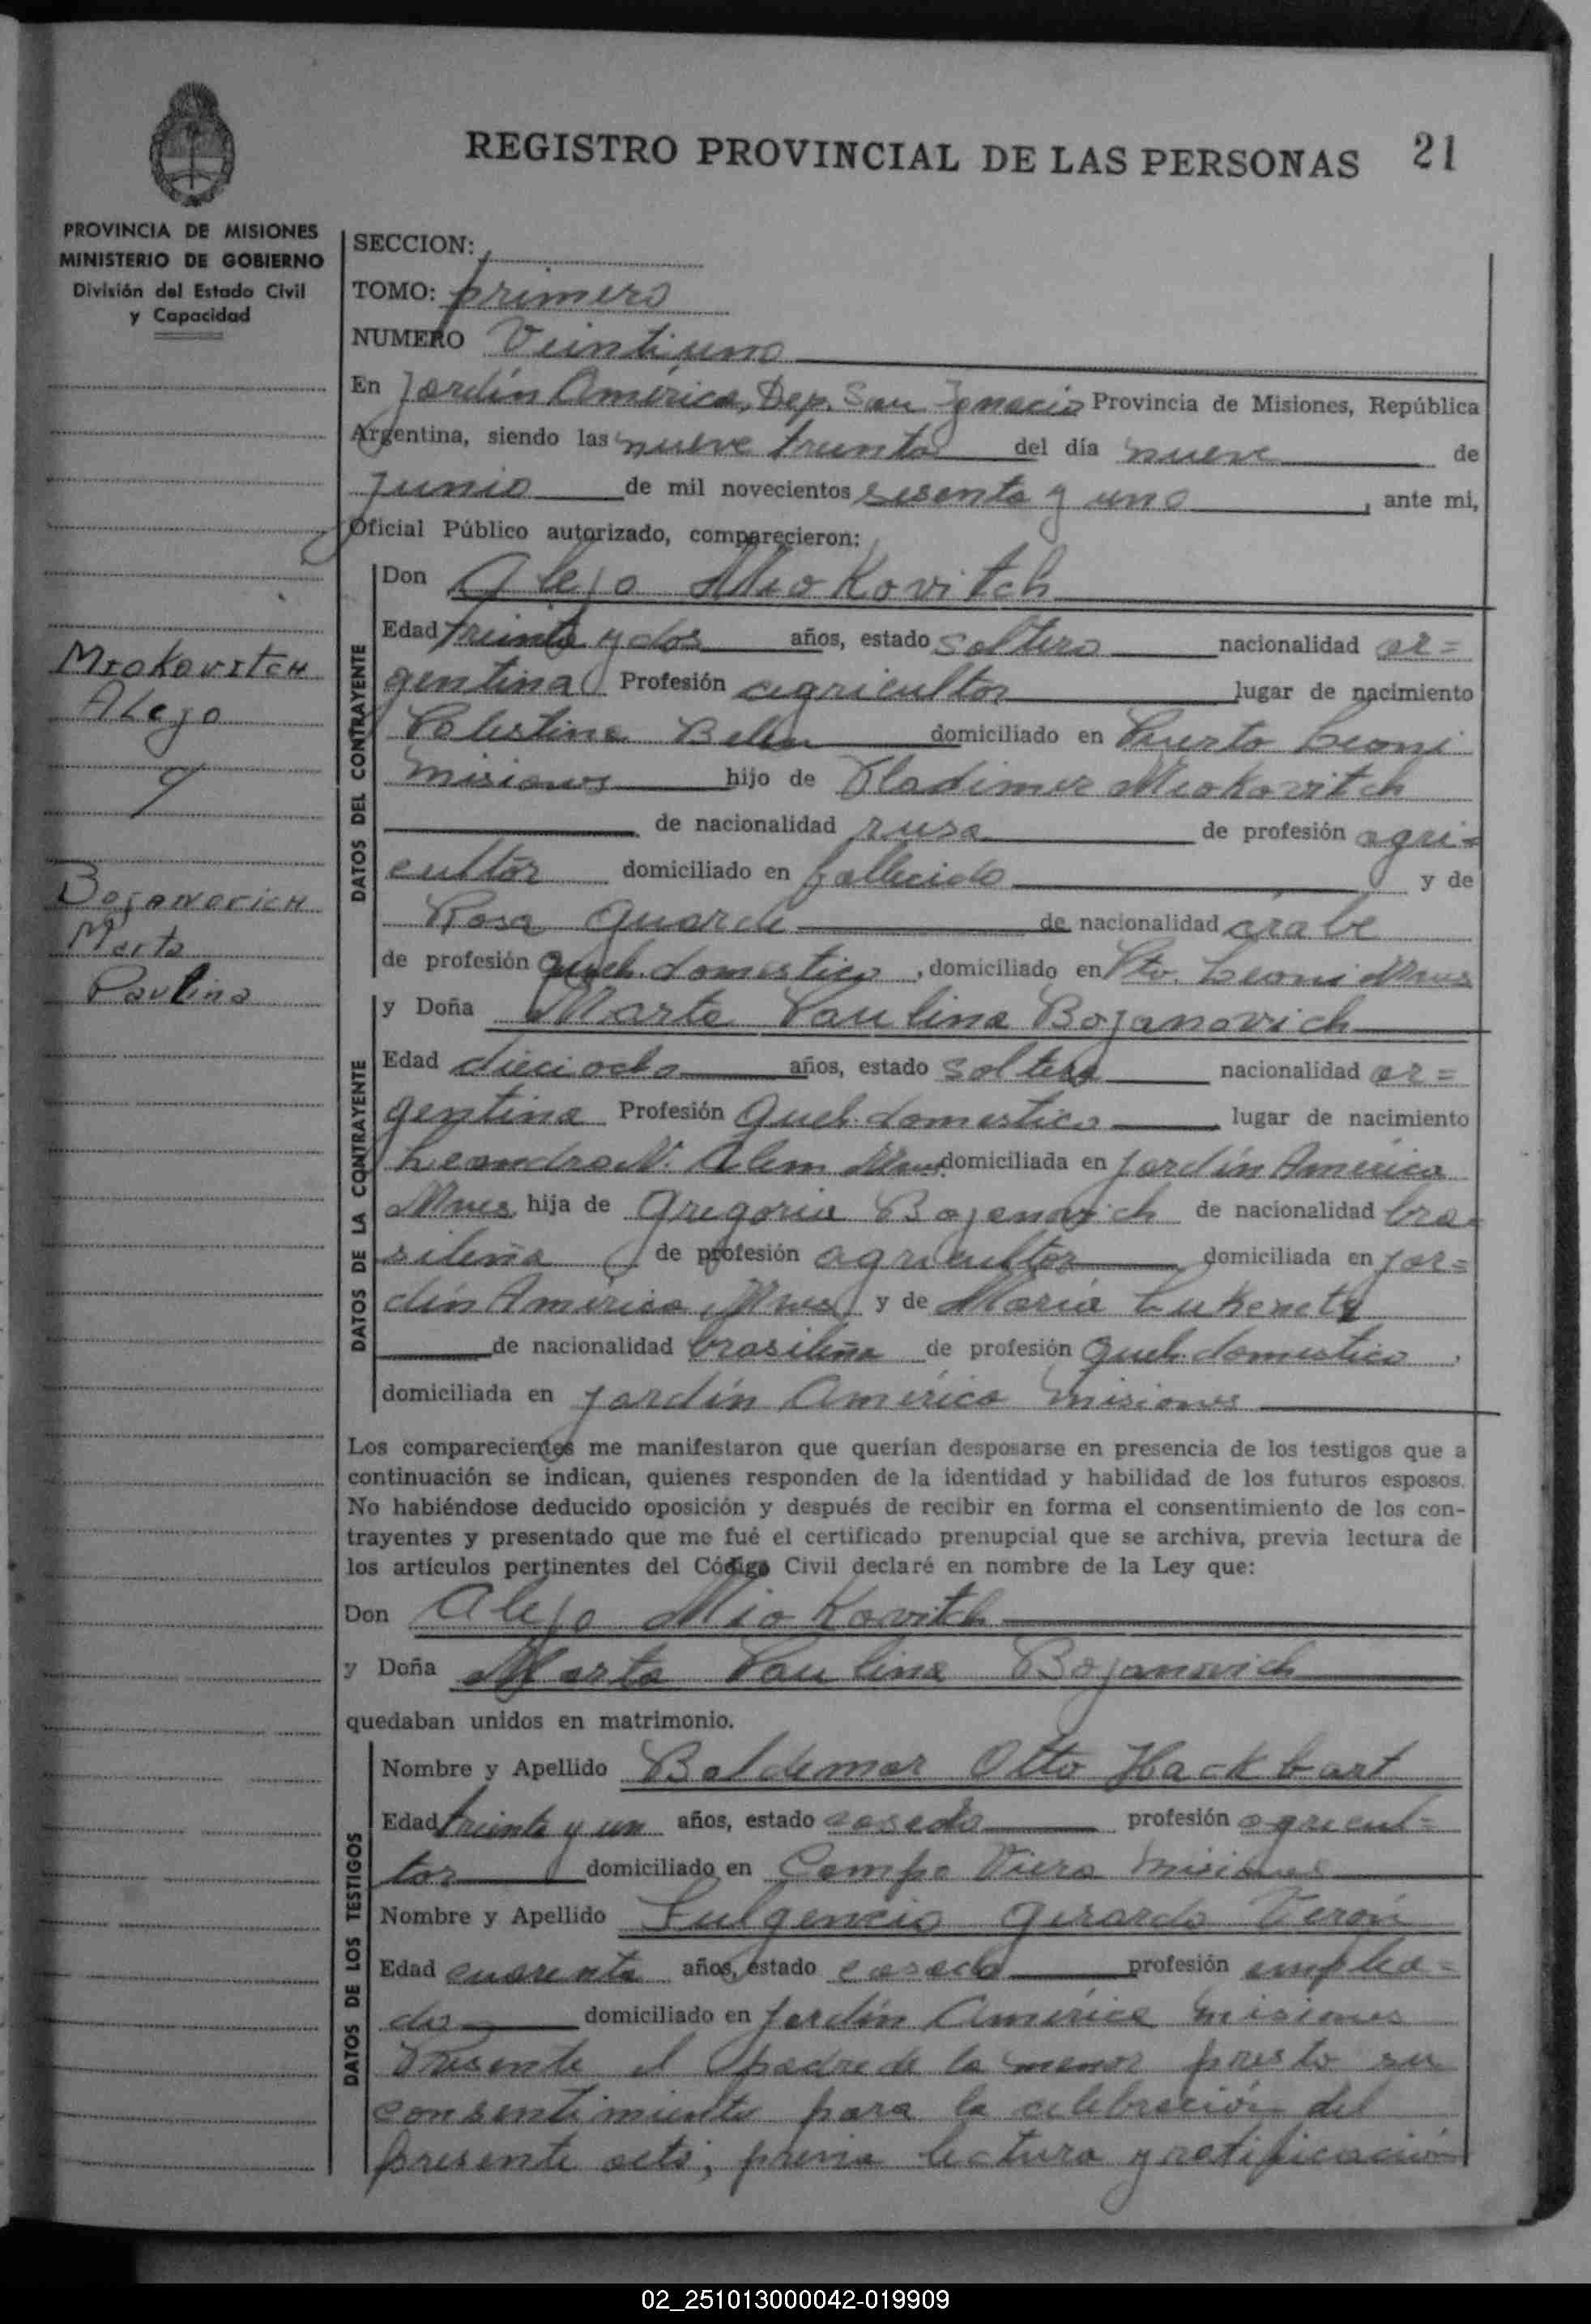 REGISTRO PROVINCIAL DE LAS PERSONAS 21
PROVINCIA DE MISIONES
MINISTERIO DE GOBIERNO
División del Estado Civil
y Capacidad
Miokovitch
Alejo
y
Bojanovich
Marta
Paulina
SECCION:
TOMO: primero
NUMERO Veintiuno
En Jardín América, Dep. San Ignacio Provincia de Misiones, República
Argentina, siendo las nueve treinta del día nueve de
Junio de mil novecientos sesenta y uno, ante mi,
Oficial Público autorizado, comparecieron:
DATOS DEL CONTRAYENTE
Don Alejo Miokovitch
Edad treinta y dos años, estado soltero nacionalidad ar=
gentina Profesión agricultor lugar de nacimiento
Palestina Belen domiciliado en Puerto Leoni
Misiones hijo de Vladimer Miokovitch
de nacionalidad rusa de profesión agri=
cultor domiciliado en fallecido y de
Rosa de nacionalidad árabe
de profesión Queh. domestico, domiciliado en Pto. Leoni Mnes
DATOS DE LA CONTRAYENTE
y Doña Marta Paulina Bojanovich
Edad dieciocho años, estado soltera nacionalidad ar=
gentina Profesión Queh. domestico lugar de nacimiento
Leandro N. Alem Mnes domiciliada en Jardín América
Mnes hija de Gregorio Bojanovich de nacionalidad bra=
sileña de profesión agricultor domiciliada en Jar=
dín América, Mnes y de María
de nacionalidad brasileña de profesión Queh. domestico,
domiciliada en Jardín América Misiones
Los comparecientes me manifestaron que querían desposarse en presencia de los testigos que a
continuación se indican, quienes responden de la identidad y habilidad de los futuros esposos.
No habiéndose deducido oposición y después de recibir en forma el consentimiento de los con-
trayentes y presentado que me fué el certificado prenupcial que se archiva, previa lectura de
los artículos pertinentes del Código Civil declaré en nombre de la Ley que:
Don Alejo Miokovitch
y Doña Marta Paulina Bojanovich
quedaban unidos en matrimonio.
DATOS DE LOS TESTIGOS
Nombre y Apellido Baldemar Otto Hackbart
Edad treinta y un años, estado casado profesión agricul=
tor domiciliado en Campo Viera Misiones
Nombre y Apellido Fulgencio Gerardo Verón
Edad cuarenta años, estado casado profesión emplea=
do domiciliado en Jardín América Misiones
Presente el padre de la menor presto su
consentimiento para la celebración del
presente acto, previa lectura y ratificación
02_251013000042-019909